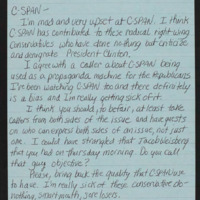 C-SPAN —
I'm mad and very upset at C-SPAN. I think
C-SPAN has contributed to these radical right-wing
conservatives who have done nothing but criticize
and denigrate President Clinton.
I agree with a caller about C-SPAN being
used as a propaganda machine for the Republicans.
I've been watching C-SPAN too and there definitely
is a bias and I'm really getting sick of it.
I think you should, to be fair, at least take
callers from both sides of the issue, and have guests
on who can express both sides of an issue, not just
one. I could have strangled that
that you had on Thursday morning. Do you call
that guy objective?
Please, bring back the quality that C-SPAN use
to have. I'm really sick of these conservative do-
nothing, smart mouth, sore losers.